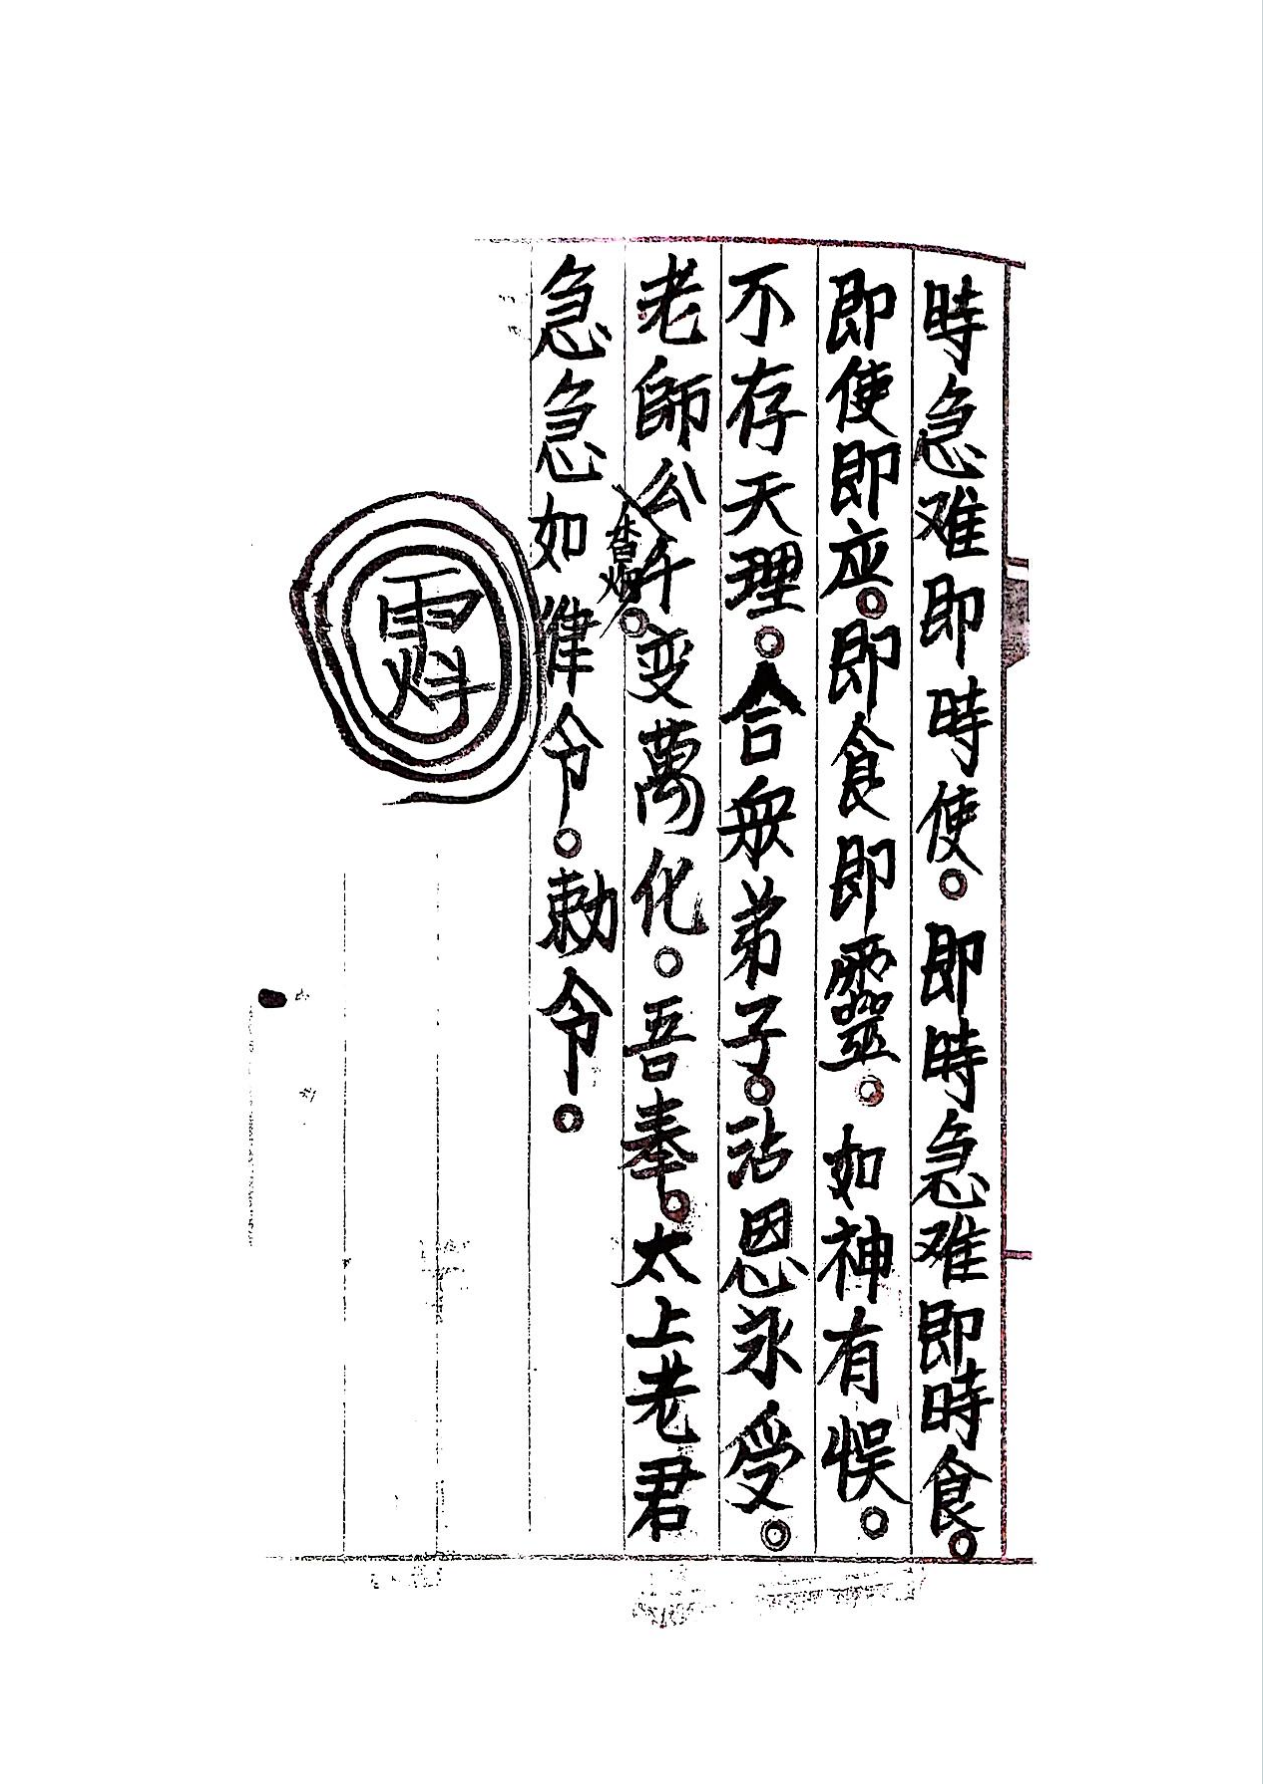 時急难即時使。即時急难即時食。
即使即应。即食即靈。如神有悮。
不存天理。合眾弟子。沾恩永受。
老師公千。变萬化。吾奉。太上老君
急急如律令。敕令。